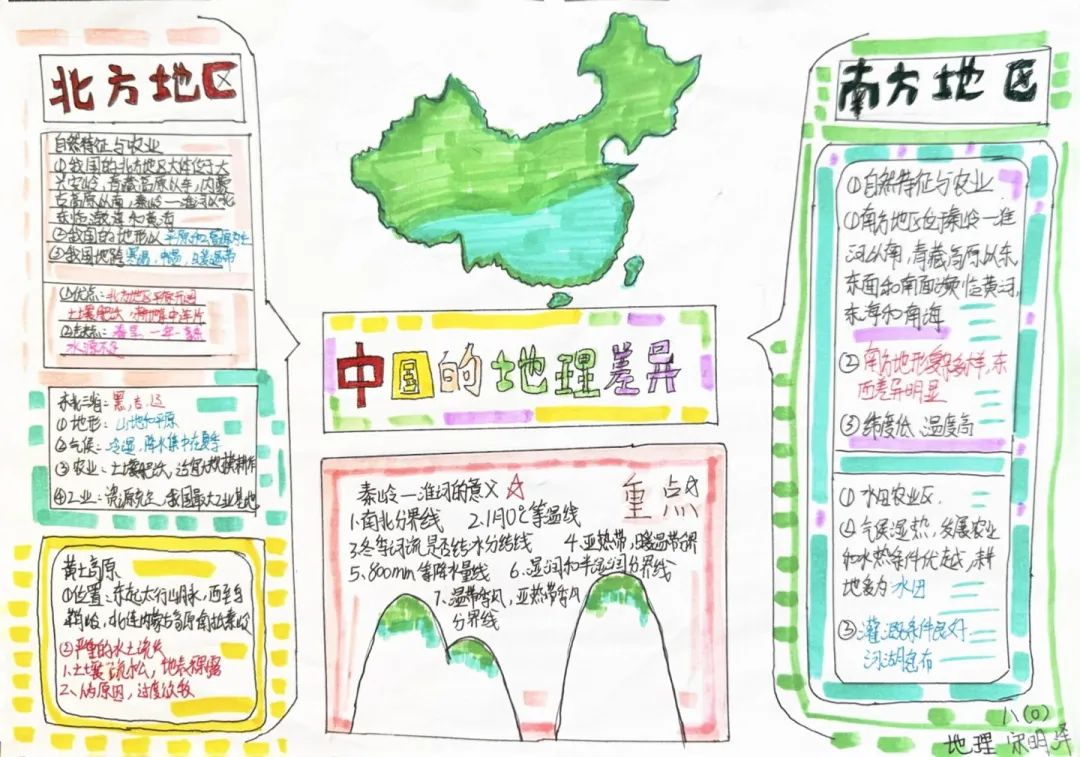 北方地区
自然特征与农业
①我国的北方地区大体位于大
兴安岭,青藏高原以东,内蒙
古高原以南,秦岭—淮河以北
东临渤海和黄海
②我国的地形以平原和高原为主
③我国地跨寒温,中温,暖温带
①优点:北方地区平原开阔
土壤肥沃,耕地集中连片
水源不足
东北三省:黑,吉,辽
①地形:山地和平原
②气候:冷湿,降水集中在夏季
③农业:土壤肥沃,适宜大规模耕作
④工业:资源充足,我国最大工业基地
黄土高原
①位置:东起太行山脉,西至乌
鞘岭,北连内蒙古高原南抵秦岭
②严重的水土流失
1.土壤疏松,地表裸露
2、人为原因,过度放牧
中国的地理差异
重点
秦岭—淮河的意义
1.南北分界线 2.1月0℃等温线
3.冬季河流是否结冰分结线 4.亚热带,暖温带分界
5、800mm等降水量线 6.湿润和半湿润分界线
7、温带季风,亚热带季风
分界线
南方地区
①自然特征与农业
①南方地区位于秦岭—淮
河以南,青藏高原以东,
东面和南面濒临黄河,
东海和南海
②南方地形复杂多样,东
西差异明显
③纬度低、温度高
①水田农业区.
②气候湿热,发展农业
和水热条件优越,耕
地多为水田
③灌溉条件良好.
河湖广布
八(0)
地理 宋明泽